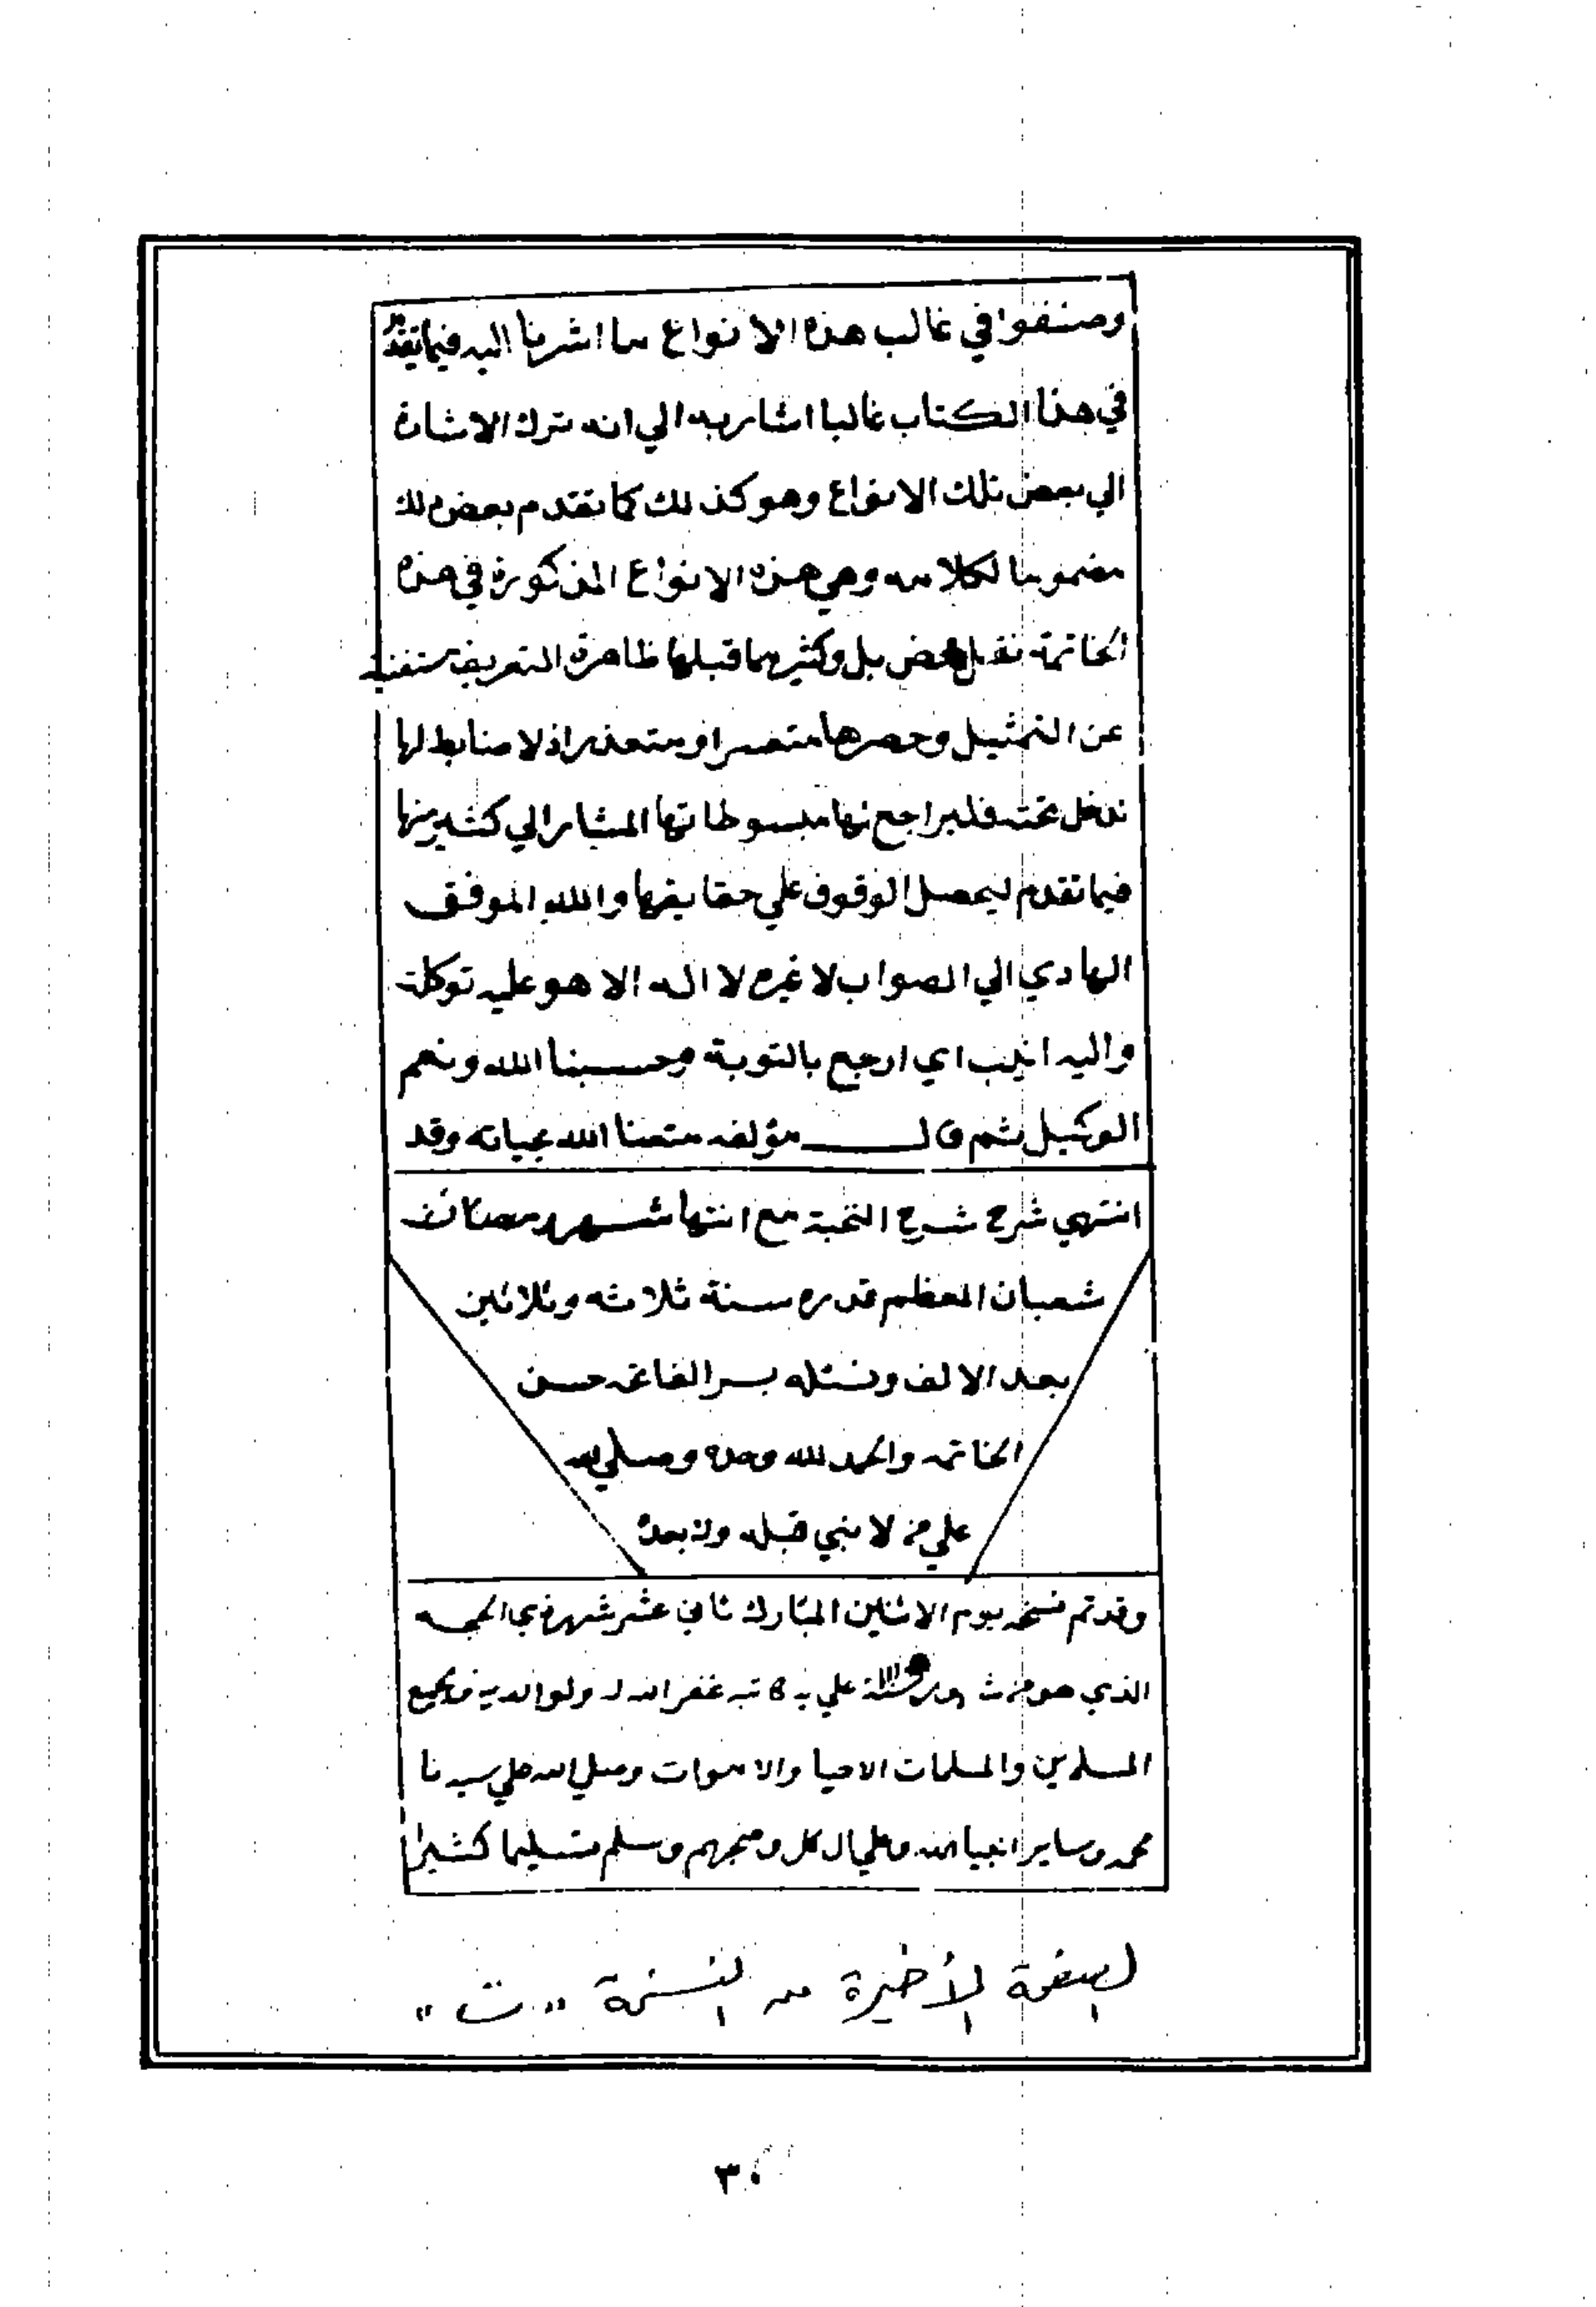 وصنفوا في غالب هذه الانواع ما اشرنا اليه فيما تقدم
في هذا الكتاب غالبا اشار به الي انه ترك الاشارة
الي بعض تلك الانواع وهو كذلك كما تقدم بعض ذلك
مضموما لكلامه وهي هذه الانواع المذكورة في هذه
الخاتمة نقل محض بل وكثير مما قبلها ظاهرة التعريف مستغنية
عن التمثيل وحصرها متعسر او متعذر اذ لا ضابط لها
تدخل تحته فليراجع لها مبسوطاتها المشار الي كثير منها
فيما تقدم ليحصل الوقوف علي حقايقها والله الموفق
الهادي الي الصواب لا غيره لا اله الا هو عليه توكلت
واليه انيب اي ارجع بالتوبة وحسبنا الله ونعم
الوكيل ثم قال مؤلفه متعنا الله بحياته وقد
انتهي شرح شرح النخبة مع انتها شهر رمضان
شعبان المعظم قدره سنة ثلاثه وثلاثين
بعد الالف ونسئله بسر الفاتحه حسن
الخاتمه والحمد لله وحده وصلي الله
علي من لا نبي قبله ولا بعده
وقد تم نسخه يوم الاثنين المبارك ثاني عشر شهر ذي الحجه
الذي هو من علي يد كاتبه غفر الله له ولوالديه ولجميع
المسلمين والمسلمات الاحيا والاموات وصلي الله علي سيدنا
محمد وساير انبيا الله وعلي ال كل وصحبهم وسلم تسليما كثيرا
الصفحة الأخيرة من النسخة « ت »
٣٠